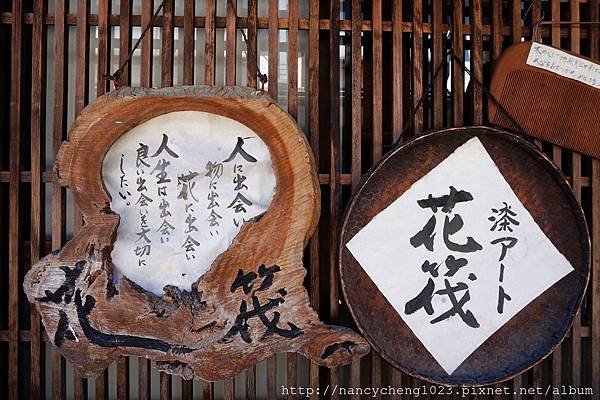 人に出会い
物に出会い
花に出会い
人生は出会い
良い出会いを大切に
したい。
花筏
漆アート
花筏
http://nancycheng1023.pixnet.net/blog